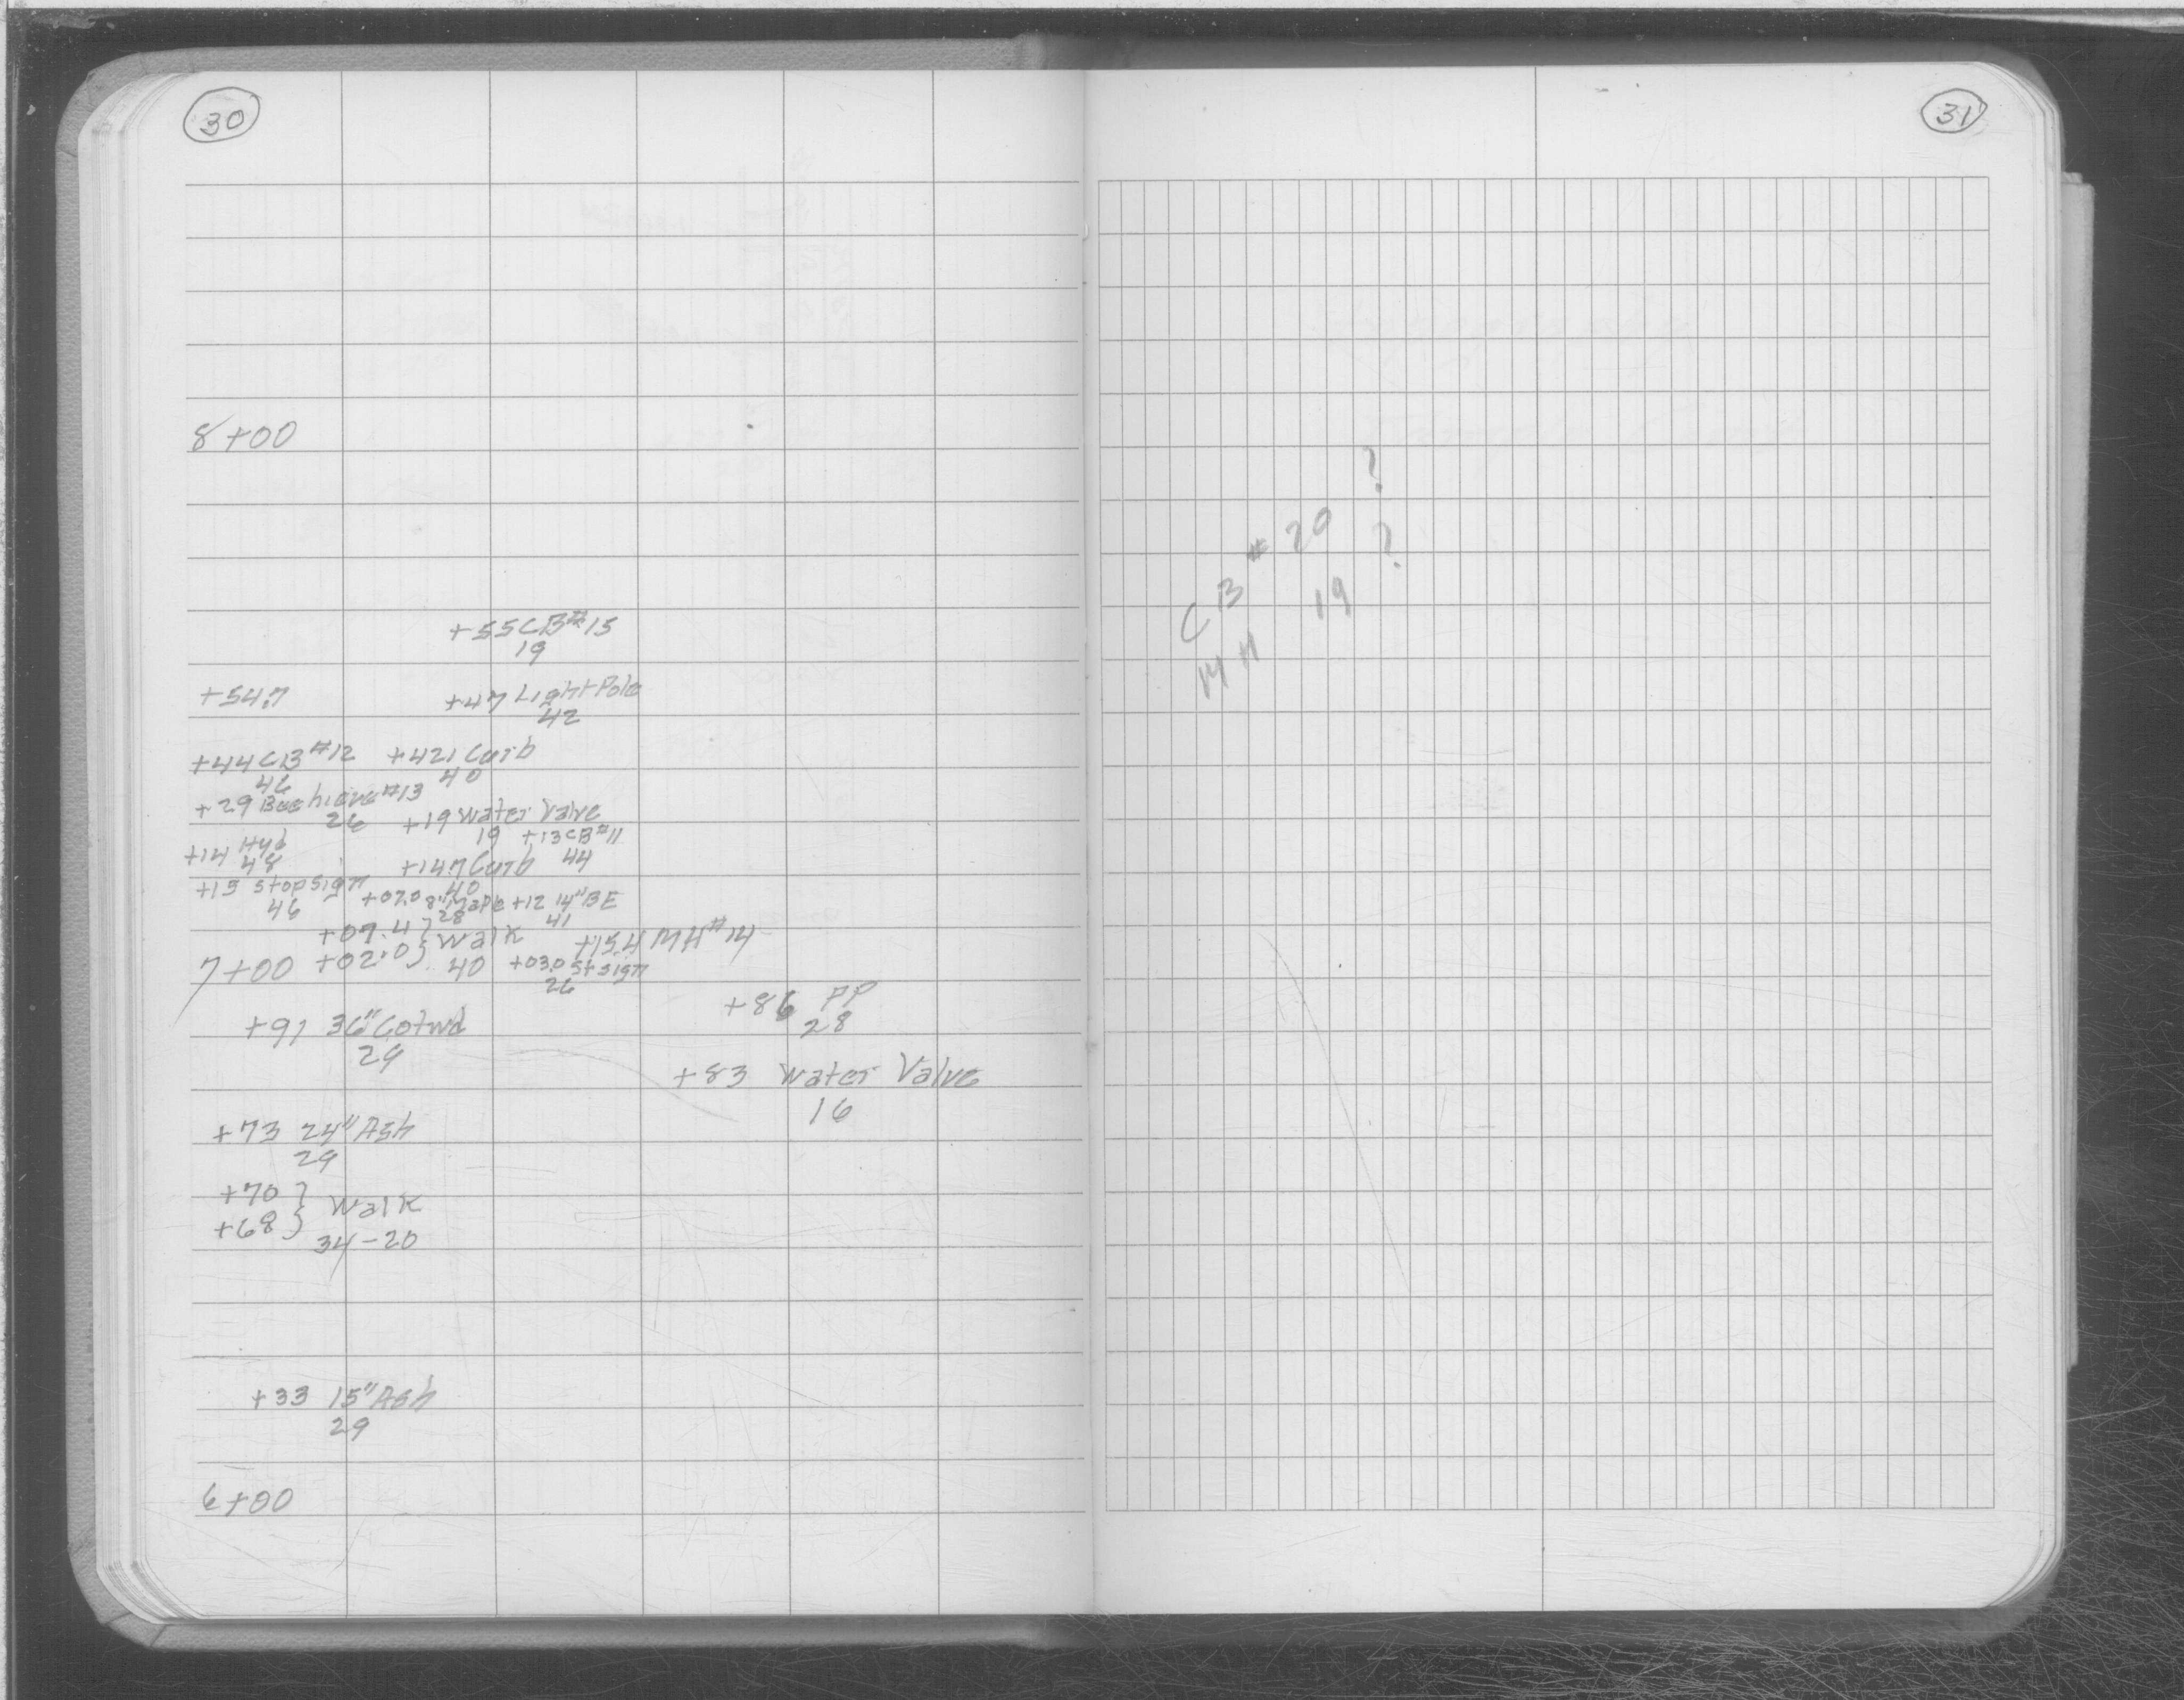 30
8+00
+55 CB#15
19
+54.7 +47 Light Pole
42
+44 CB#12 +421 Curb
46 40
+29 Beehieve #13
26 +19 Water Valve
19 +13 CB#11
+14 Hyd
48 +14.7 Curb 44
40
+15 Stop Sign
46 +07.0 8" Maple +12 14" BE
28 41
+07.4 } Walk
+02.0 } 40
+15.4 MH#14
7+00 +03.0 St Sign
26
+86 PP
28
+91 36" Cotwd
29
+83 Water Valve
16
+73 24" Ash
29
+70 } Walk
+68 } 34-20
+33 15" Ash
29
6+00
31
CB # 20 ?
MH 19 ?